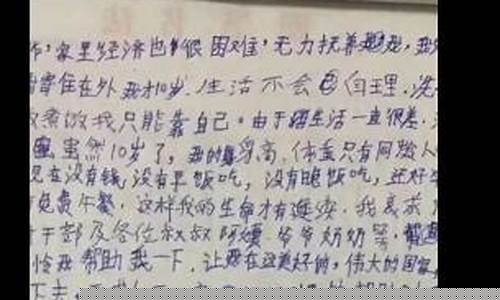 家里经济也很困难，无力抚养我，我
寄住在外 我才10岁．生活不会自理．洗
煮饭我只能靠自己。由于生活一直很差．
虽然10岁了，我的身高．体重只有同龄人
现在没有钱，没有早饭吃，没有晚饭吃，还好
免费午餐，这样我的生命才有延续．我恳求
干部及各位叔叔 阿姨．爷爷奶奶等
怜我 帮助 我一下．让我在这美好的，伟大的国家
下去